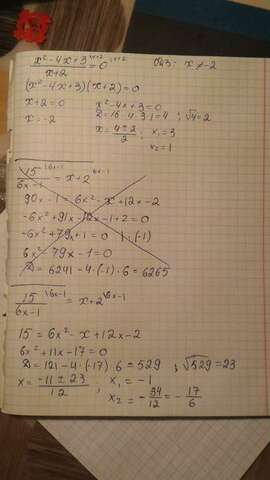 x²-4x+3\ˣ⁺²/x+2 = 0\ˣ⁺² ОДЗ: x ≠ -2
(x²-4x+3)(x+2)=0
x+2=0 x²-4x+3=0
x=-2 D=16-4·3·1=4 ; √4=2
x=4±2/2 ; x₁=3
x₂=1
15\⁶ˣ⁻¹/6x-1 = x+2\⁶ˣ⁻¹
90x-1=6x²-x+12x-2
-6x²+91x-12x-1+2=0
-6x²+79x+1=0 | ·(-1)
6x²-79x-1=0
D=6241-4·(-1)·6=6265
15\⁶ˣ⁻¹/6x-1 = x+2\⁶ˣ⁻¹
15=6x²-x+12x-2
6x²+11x-17=0
D=121-4·(-17)·6=529 ; √529=23
x=-11±23/12 ; x₁=-1
x₂=-34/12=-17/6